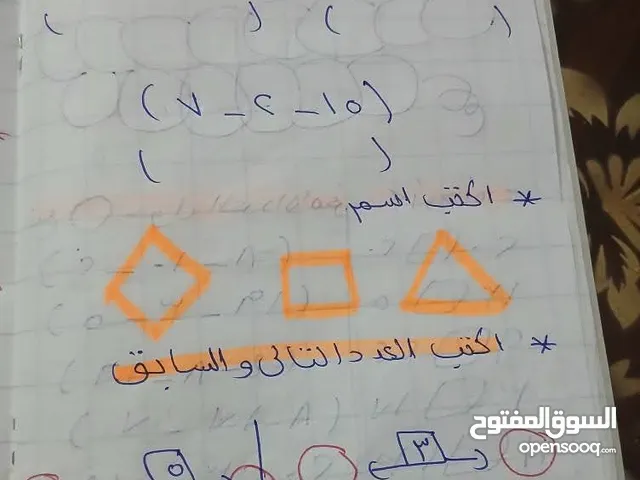 (     ) (     )
(١٥ - ٢ - ٧)
(     )
* اكتب اسم
* اكتب العدد التالى والسابق
٣
٥
السوق المفتوح
opensooq.com